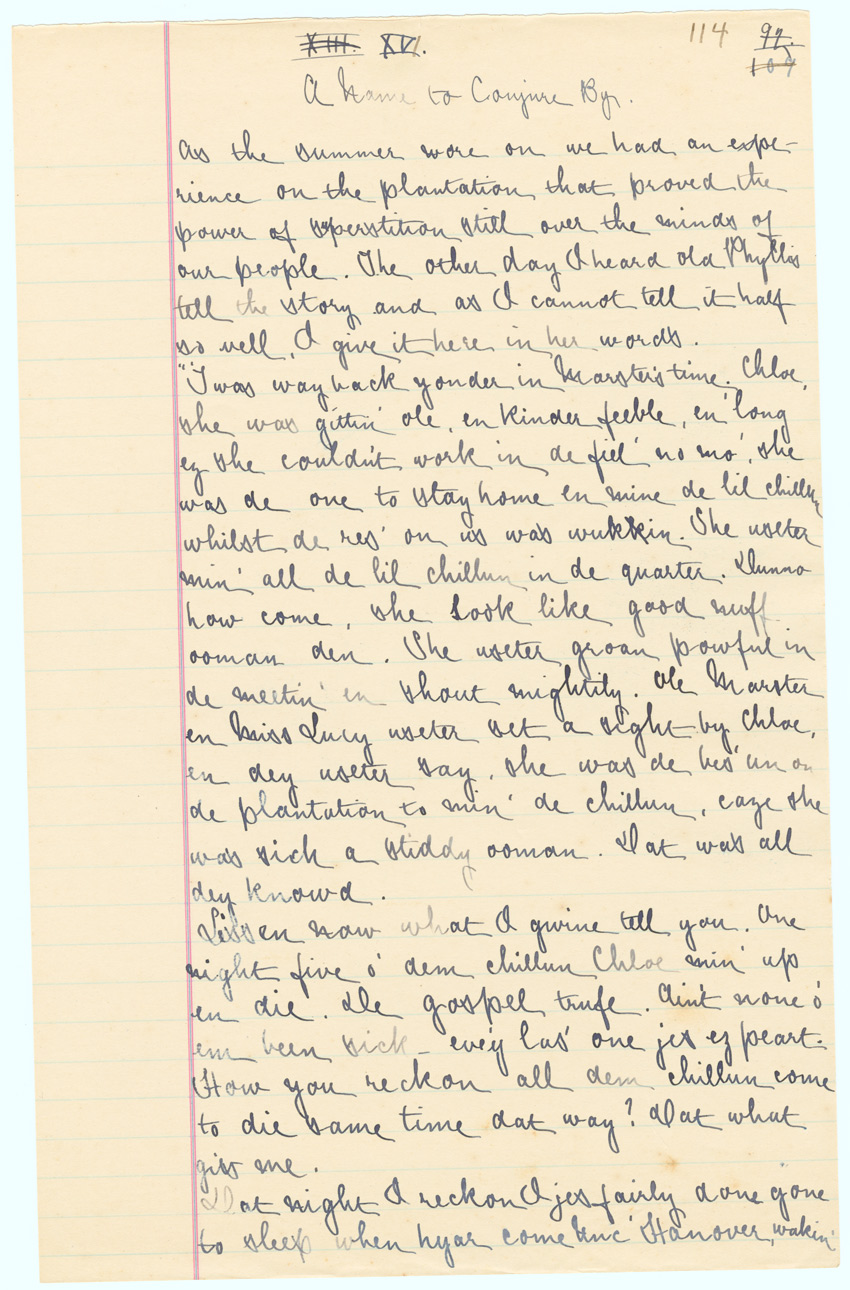 XIII. XVI.
114 97.
109
A Name to Conjure By.
As the summer wore on we had an expe-
rience on the plantation that proved the
power of superstition still over the minds of
our people. The other day I heard old Phyllis
tell the story and as I cannot tell it half
so well, I give it here in her words.
"'Twas way back yonder in Marster's time. Chloe,
she was gittin' ole, en kinder feeble, en 'long
ez she couldn't work in de fiel' no mo', she
was de one to stay home en mine de lil chillun
whilst de res' on us was wukkin. She useter
min' all de lil chillun in de quarter. Dunno
how come, she look like good nuff
ooman den. She useter groan powful in
de meetin' en shout mightily. Ole Marster
en Miss Lucy useter set a sight by Chloe,
en dey useter say, she was de bes' un on
de plantation to min' de chillun, caze she
was sich a stiddy ooman. Dat was all
dey knowd.
Lissen now what I gwine tell you. One
night five o' dem chillun Chloe min' up
en die. De gospel trufe. Ain't none o'
em been sick - eve'y las' one jes ez peart.
How you reckon all dem chillun come
to die same time dat way? Dat what
gits me.
Dat night I reckon I jes fairly done gone
to sleep when hyar come Unc' Hanover, wakin'